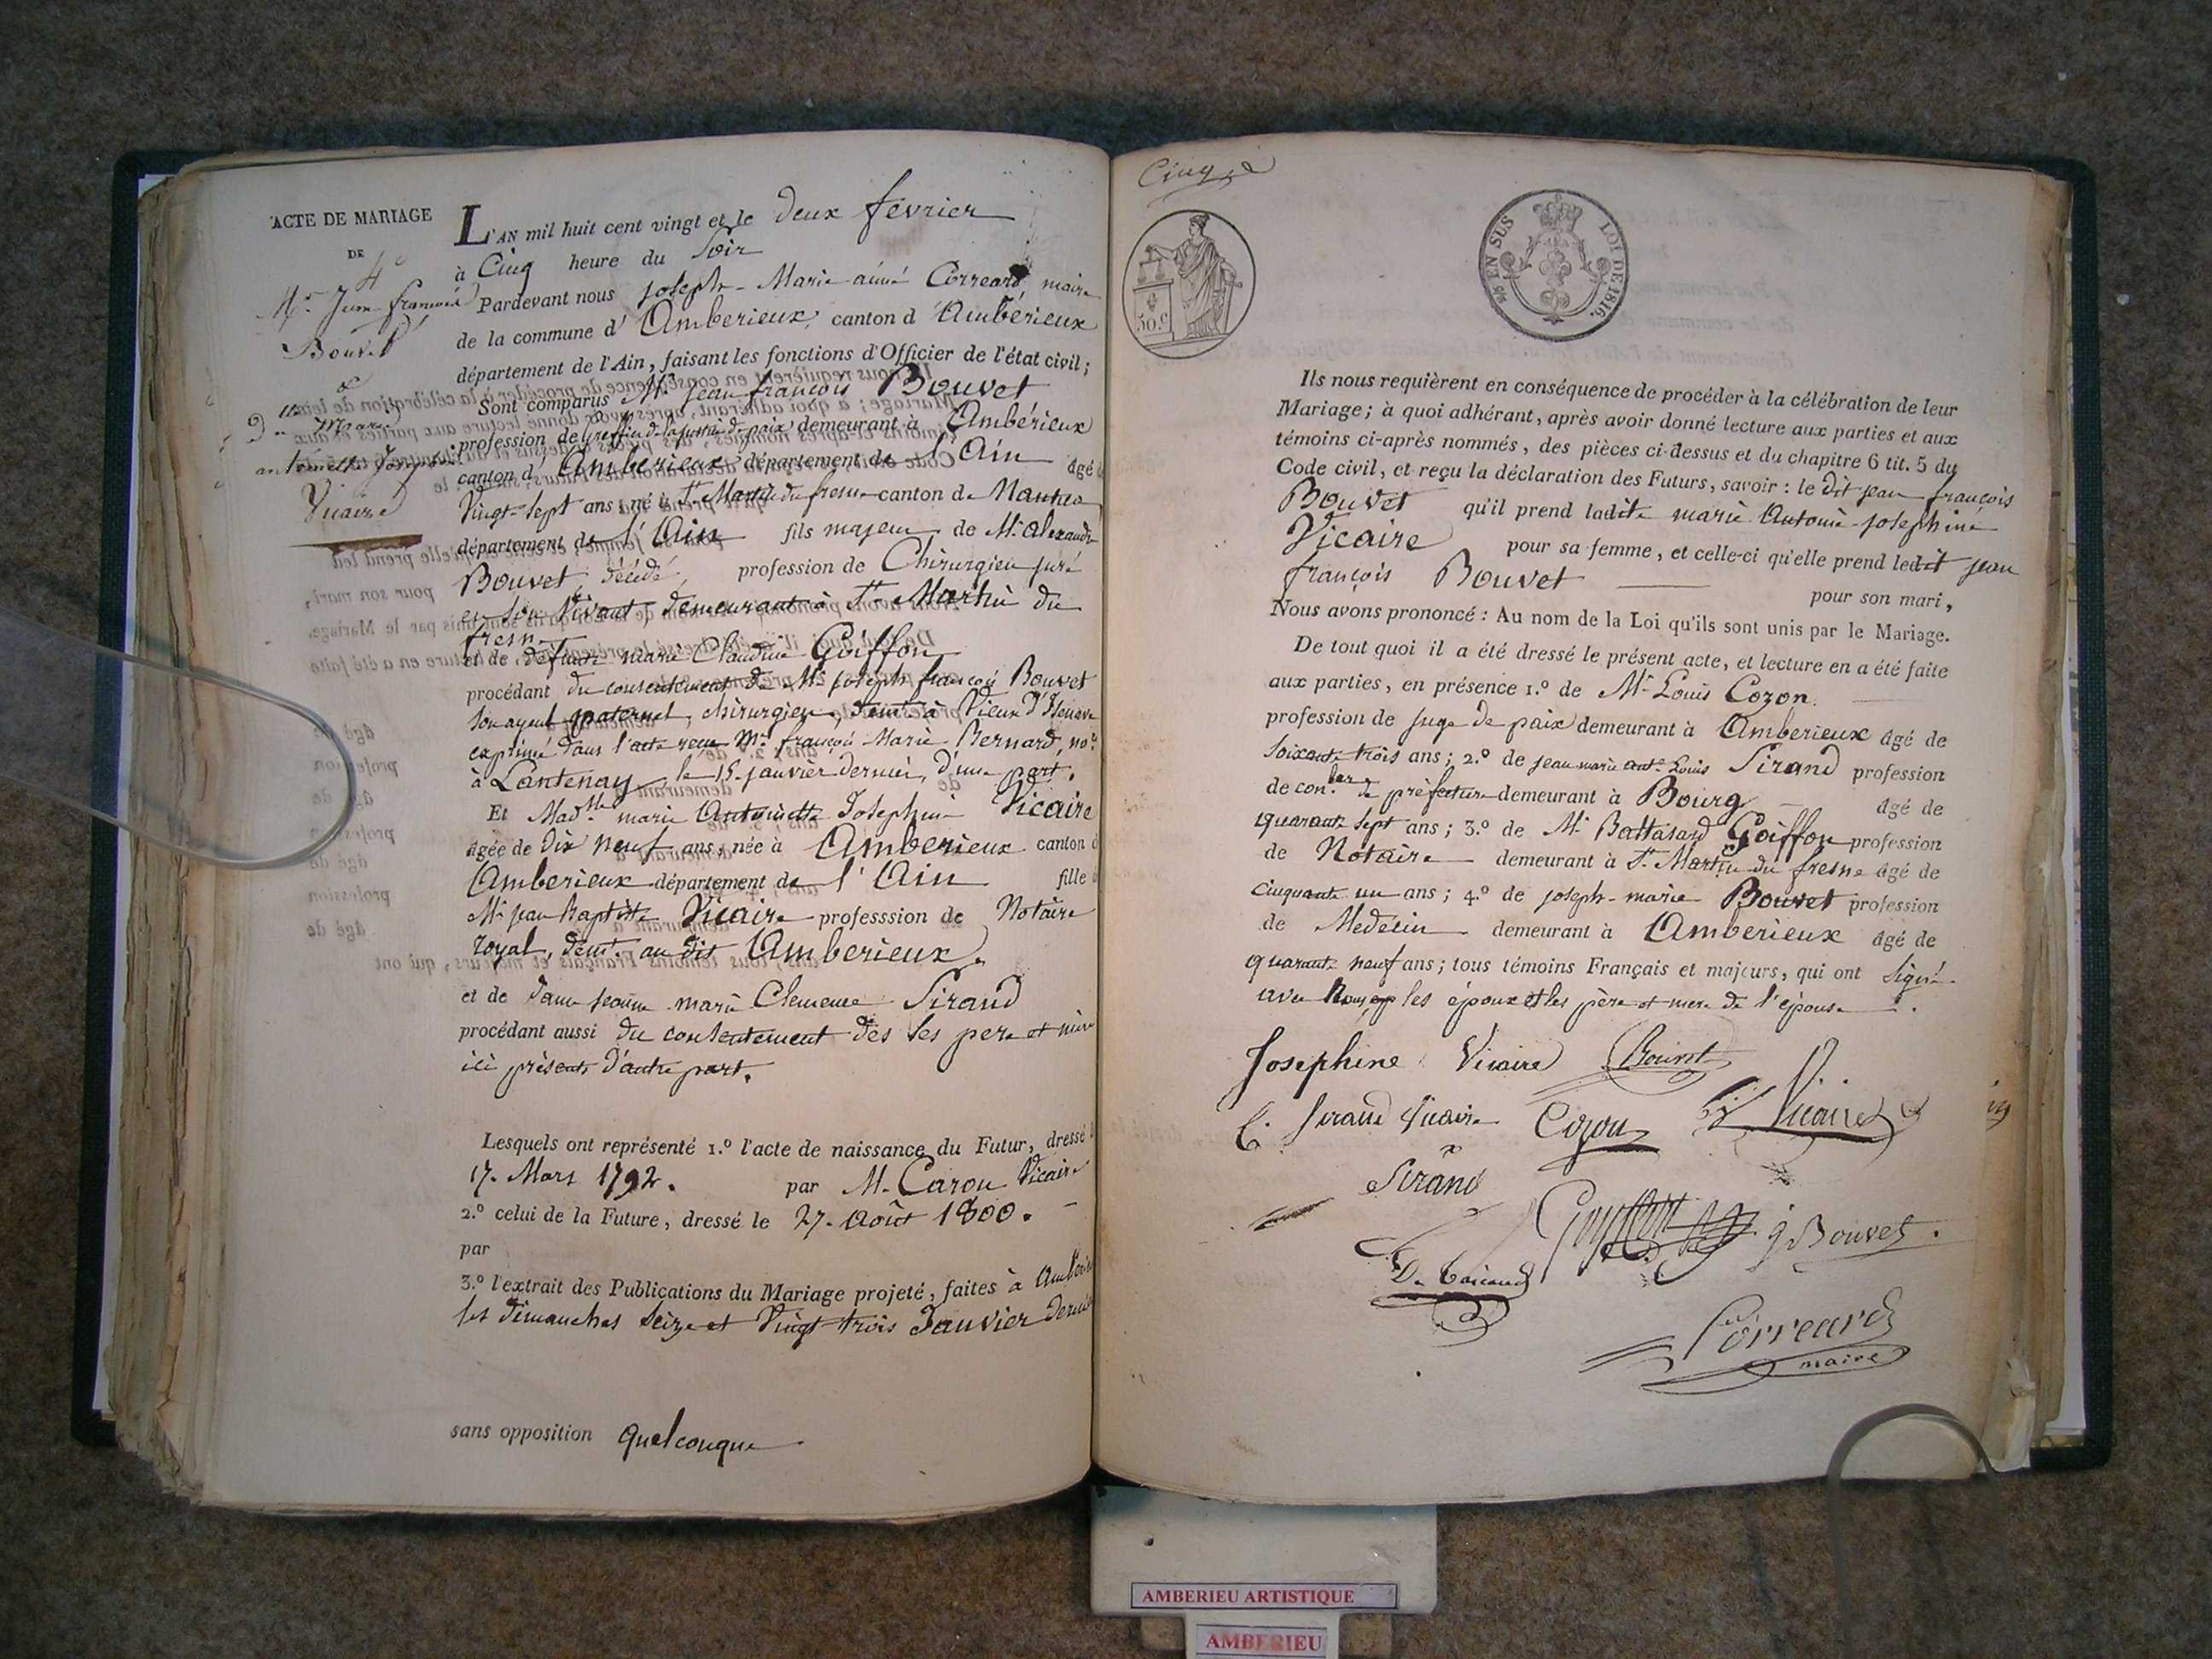 ACTE DE MARIAGE
DE
4e
Mr. Jean françois
Bouvet
et
Dlle Marie
antoinette Josephine
Vicaire
L'AN mil huit cent vingt et le deux février
à Cinq heure du Soir
Pardevant nous joseph-Marie aimé Correard maire
de la commune d'Amberieux, canton d'Ambérieux
département de l'Ain, faisant les fonctions d'Officier de l'état civil;
Sont comparus Mr. jean françois Bouvet
profession de Greffier de la justice de paix demeurant à Ambérieux
canton d'Amberieux département de l'Ain âgé de
Vingt-sept ans né à St. Martin du fresne canton de Nantua
département de l'Ain fils majeur de Mr. alexandre
Bouvet décédé, profession de Chirurgien juré
en son Vivant, demeurant à St. Martin du
fresne
et de défunte marie Claudine Goiffon
procédant du consentement de Mr. joseph françois Bouvet
son ayeul paternel, chirurgien, demt. à Vieux d'Isenave
exprimé dans l'acte recu Mr. françois Marie Bernard, nore.
à Lantenay le 15. janvier dernier, d'une part.
Et Madlle marie Antoinette Josephine Vicaire
âgée de Dix neuf ans, née à Amberieux canton d
Amberieux département de l'Ain fille de
Mr. jean baptiste Vicaire professsion de Notaire
royal, demt. au dit Amberieux.
et de dame jeanne marie Clemence Sirand
procédant aussi du consentement des ses pere et mère
ici présents d'autre part.
Lesquels ont représenté 1.º l'acte de naissance du Futur, dressé le
17. Mars 1792. par M. Carou Vicaire
2.º celui de la Future, dressé le 27. Août 1800.
par
3.º l'extrait des Publications du Mariage projeté, faites à
les dimanches Seize et Vingt-trois Janvier dernier
sans opposition quelconque
Cinq
50.c
EN SUS LOI DE 1816.
Ils nous requièrent en conséquence de procéder à la célébration de leur
Mariage; à quoi adhérant, après avoir donné lecture aux parties et aux
témoins ci-après nommés, des pièces ci-dessus et du chapitre 6 tit. 5 du
Code civil, et reçu la déclaration des Futurs, savoir: le dit jean françois
Bouvet qu'il prend ladite marie Antoine-josephine
Vicaire pour sa femme, et celle-ci qu'elle prend ledit jean
françois Bouvet pour son mari,
Nous avons prononcé: Au nom de la Loi qu'ils sont unis par le Mariage.
De tout quoi il a été dressé le présent acte, et lecture en a été faite
aux parties, en présence 1.º de Mr. Louis Cozon.
profession de juge de paix demeurant à Amberieux âgé de
soixante trois ans; 2.º de jean marie ante. Louis Sirand profession
de conller de préfecture demeurant à Bourg âgé de
quarante sept ans; 3.º de Mr. Baltasard Goiffon profession
de Notaire demeurant à St. Martin du fresne âgé de
cinquante un ans; 4.º de joseph-marie Bouvet profession
de Medecin demeurant à Amberieux âgé de
quarante neuf ans; tous témoins Français et majeurs, qui ont signé
avec Nous, les époux et les père et mere de l'épouse.
Josephine Vicaire Bouvet
C. Sirand Vicaire Cozon Vicaire
Sirand
Goiffon j Bouvet.
Correard
maire
AMBERIEU ARTISTIQUE
AMBERIEU